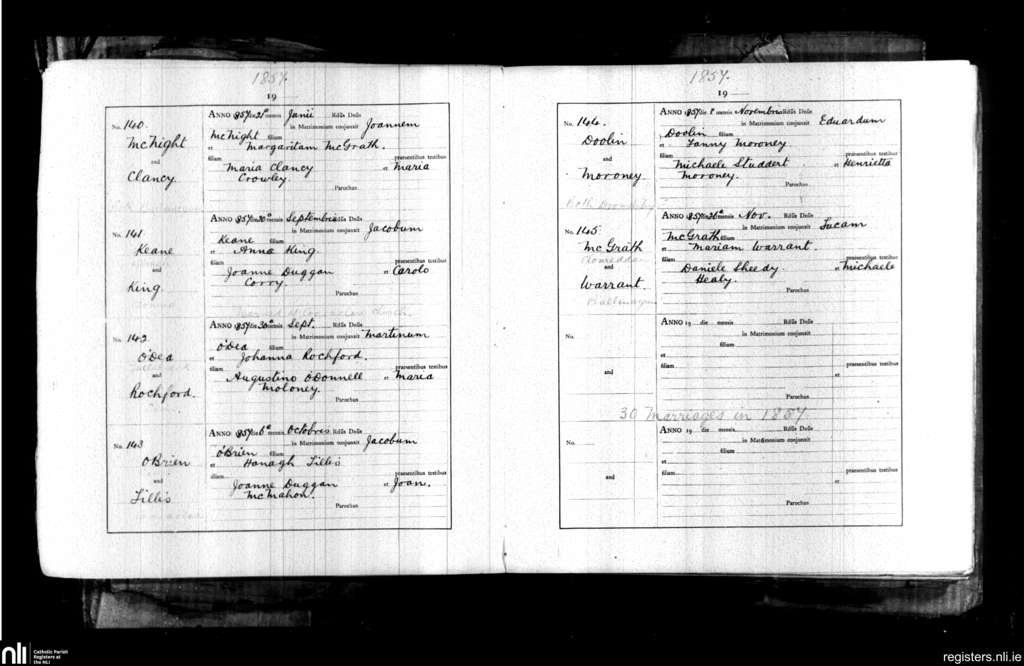 1857.
19
No. 140.
McNight
and
Clancy
Anno 1857 die 21º mensis Junii Rdus Dnus
in Matrimonium conjunxit Joannem
McNight filium
et Margaritam McGrath.
filiam praesentibus testibus
Maria Clancy et Maria
Crowley.
Parochus
No. 141
Keane
and
King.
Anno 1857 die 20º mensis Septembris Rdus Dnus
in Matrimonium conjunxit Jacobum
Keane filium
et Anna King
filiam praesentibus testibus
Joanne Duggan et Carolo
Corry.
Parochus
No. 142
O'Dea
and
Rochford.
Anno 1857 die 30º mensis Sept. Rdus Dnus
in Matrimonium conjunxit Martinum
O'Dea filium
et Johanna Rochford.
filiam praesentibus testibus
Augustino O'Donnell et Maria
Moloney.
Parochus
No. 143
O'Brien
and
Lillis
Anno 1857 die 6º mensis Octobris Rdus Dnus
in Matrimonium conjunxit Jacobum
O'Brien filium
et Hanagh Lillis
filiam praesentibus testibus
Joanne Duggan et Joan.
McMahon.
Parochus
1857.
19
No. 144.
Doolin
and
Moroney.
Anno 1857 die mensis Novembris Rdus Dnus
in Matrimonium conjunxit Eduardum
Doolin filium
et Fanny Moroney
filiam praesentibus testibus
Michaele Studdert et Henrietta
Moroney.
Parochus
No. 145
McGrath
and
Warrant.
Anno 1857 die mensis Nov. Rdus Dnus
in Matrimonium conjunxit Lucam
McGrath filium
et Mariam Warrant.
filiam praesentibus testibus
Daniele Sheedy. et Michaele
Healy.
Parochus
No.
and
Anno 19 die mensis Rdus Dnus
in Matrimonium conjunxit
filium
et
filiam praesentibus testibus
et
Parochus
30 Marriages in 1857
No.
and
Anno 19 die mensis Rdus Dnus
in Matrimonium conjunxit
filium
et
filiam praesentibus testibus
et
Parochus
nli Catholic Parish
Registers at
the NLI
registers.nli.ie